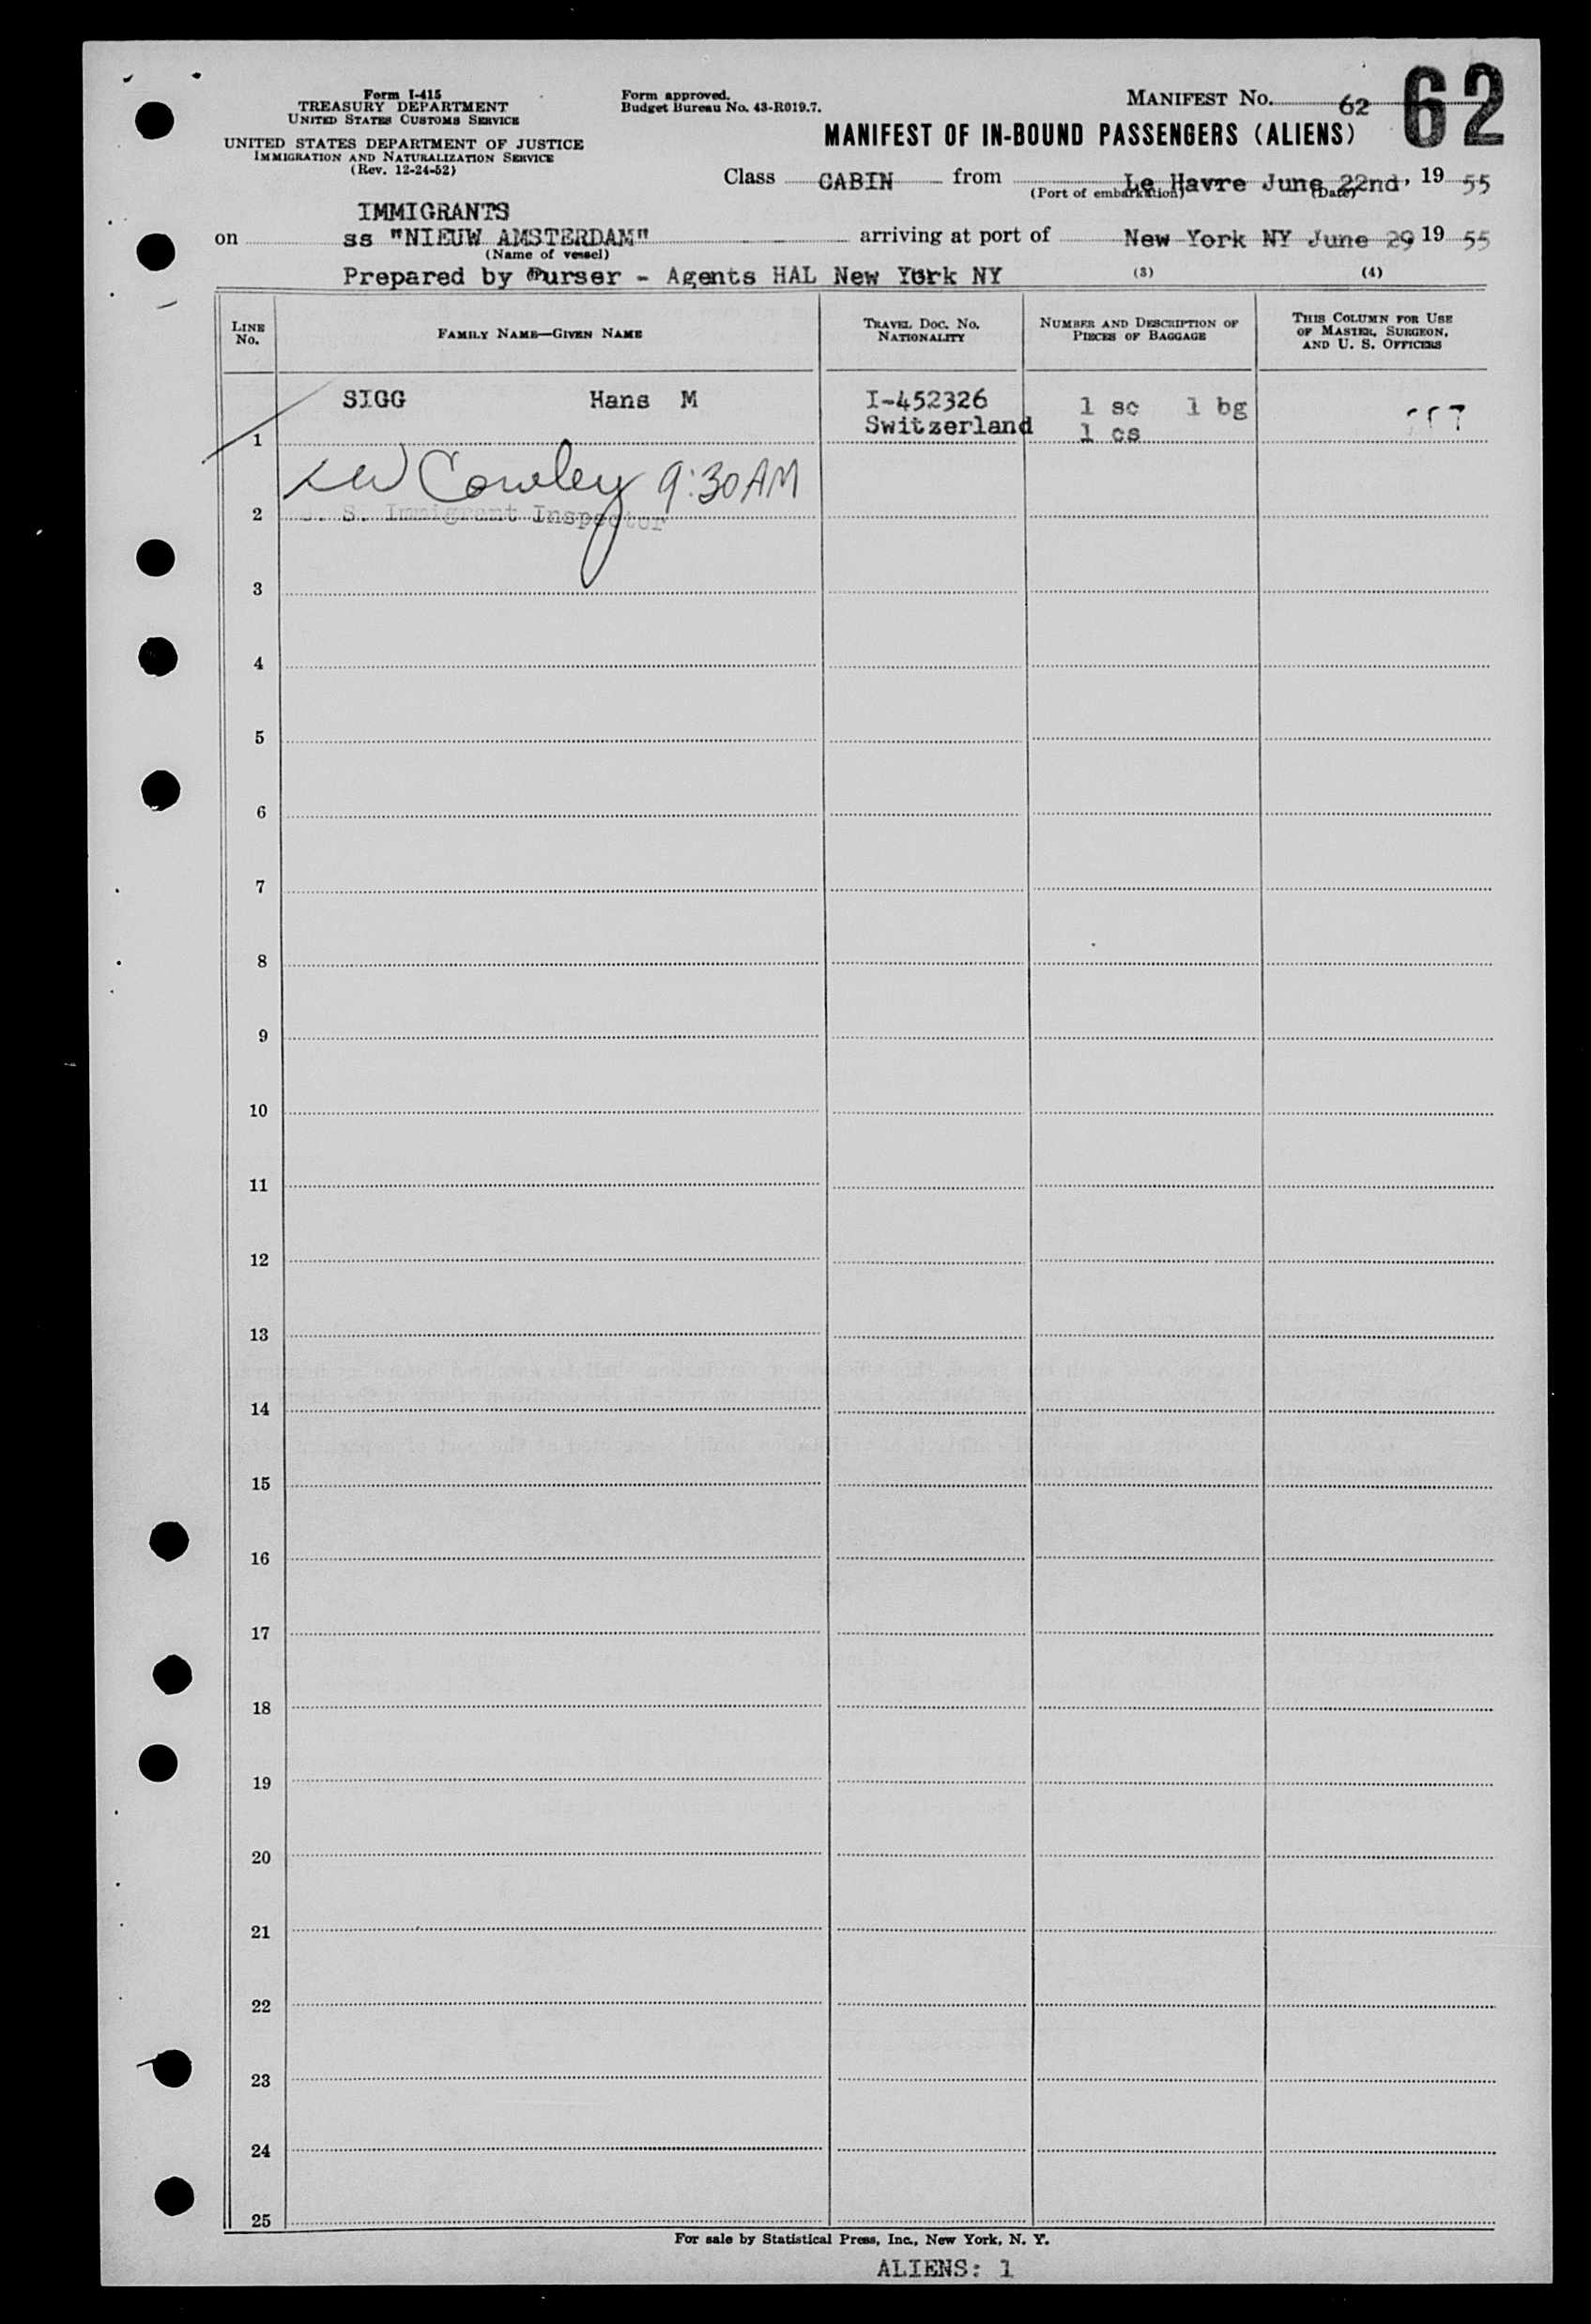 Form I-415
TREASURY DEPARTMENT
UNITED STATES CUSTOMS SERVICE
UNITED STATES DEPARTMENT OF JUSTICE
IMMIGRATION AND NATURALIZATION SERVICE
(Rev. 12-24-52)
Form approved.
Budget Bureau No. 43-R019.7.
MANIFEST No. 62
62
MANIFEST OF IN-BOUND PASSENGERS (ALIENS)
Class CABIN from Le Havre June 22nd, 19 55
(Port of embarkation) (Date)
IMMIGRANTS
on ss "NIEUW AMSTERDAM" arriving at port of New York NY June 29 19 55
(Name of vessel)
Prepared by Purser - Agents HAL New York NY
(3) (4)
LINE No.
FAMILY NAME—GIVEN NAME
TRAVEL DOC. No. NATIONALITY
NUMBER AND DESCRIPTION OF PIECES OF BAGGAGE
THIS COLUMN FOR USE OF MASTER, SURGEON, AND U. S. OFFICERS
SIGG Hans M I-452326 1 sc 1 bg
1 Switzerland 1 cs
Cowley 9:30 AM
2 U. S. Immigrant Inspector
3
4
5
6
7
8
9
10
11
12
13
14
15
16
17
18
19
20
21
22
23
24
25
For sale by Statistical Press, Inc., New York, N. Y.
ALIENS: 1